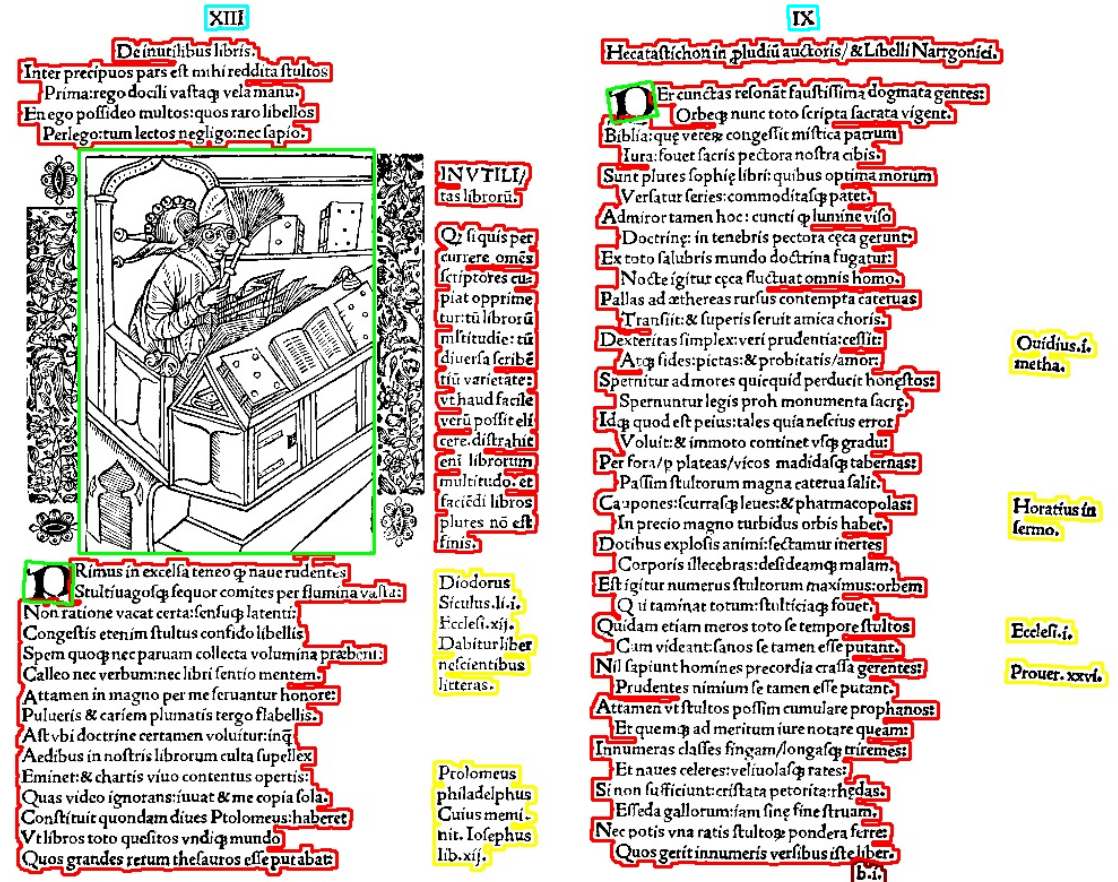 XIII
De inutilibus libris.
Inter precipuos pars est mihi reddita stultos
Prima: rego docili vastaqȝ vela manu.
En ego possideo multos: quos raro libellos
Perlego: tum lectos negligo: nec sapio.
INVTILI/
tas librorū.
Qȝ si quis per
currere omēs
scriptores cu
piat opprime
tur: tū librorū
mltitudie: tū
diuersa scribē
tiū varietate:
vt haud facile
verū possit eli
cere. distrahit
eni librorum
multitudo. et
faciēdi libros
plures nō est
finis.
PRimus in excelsa teneo qȝ naue rudentes
Stultiuagosqȝ sequor comites per flumina vasta:
Non ratione vacat certa: sensuqȝ latenti:
Congestis etenim stultus confido libellis
Spem quoqȝ nec paruam collecta volumina præbent:
Calleo nec verbum: nec libri sentio mentem.
Attamen in magno per me seruantur honore:
Pulueris & cariem plumatis tergo flabellis.
Ast vbi doctrine certamen voluitur: inq̄
Aedibus in nostris librorum culta supellex
Eminet: & chartis viuo contentus opertis:
Quas video ignorans: iuuat & me copia sola.
Constituit quondam diues Ptolomeus: haberet
Vt libros toto quesitos vndiqȝ mundo
Quos grandes rerum thesauros esse putabat:
Diodorus
Siculus. li. i.
Ecclesi. xij.
Dabitur liber
nescientibus
litteras.
Ptolomeus
philadelphus
Cuius memi-
nit. Iosephus
lib. xij.
IX
Hecatastichon in ꝓludiū auctoris/ & Libelli Narrgonici.
PEr cunctas resonāt faustissima dogmata gentes:
Orbeqȝ nunc toto scripta sacrata vigent.
Biblia: quę veteꝝ congessit mistica patrum
Iura: fouet sacris pectora nostra cibis.
Sunt plures sophię libri: quibus optima morum
Versatur series: commoditasqȝ patet.
Admiror tamen hoc: cuncti qȝ lumine viso
Doctrinę: in tenebris pectora cęca gerunt:
Ex toto salubris mundo doctrina fugatur:
Nocte igitur cęca fluctuat omnis homo.
Pallas ad æthereas rursus contempta cateruas
Transiit: & superis seruit amica choris.
Dexteritas simplex: veri prudentia: cessit:
Atqȝ fides: pietas: & probitatis/ amor:
Spernitur ad mores quicquid perducit honestos:
Spernuntur legis proh monumenta sacrę.
Idqȝ quod est peius: tales quia nescius error
Voluit: & immoto continet vsqȝ gradu:
Per fora/ p plateas/ vicos madidasqȝ tabernas:
Passim stultorum magna caterua salit.
Caupones: scurrasqȝ leues: & pharmacopolas:
In precio magno turbidus orbis habet.
Dotibus explosis animi: sectamur inertes
Corporis illecebras: desideamqȝ malam.
Est igitur numerus stultorum maximus: orbem
Qui taminat totum: stulticiaqȝ fouet.
Quidam etiam meros toto se tempore stultos
Cum videant: sanos se tamen esse putant.
Nil sapiunt homines precordia crassa gerentes:
Prudentes nimium se tamen esse putant.
Attamen vt stultos possim cumulare prophanos:
Et quemqȝ ad meritum iure notare queam:
Innumeras classes fingam/ longasqȝ triremes:
Et naues celeres: veliuolasqȝ rates:
Si non sufficiunt: cristata petorita: rhędas.
Esseda gallorum: iam sinę fine struam.
Nec potis vna ratis stultoꝝ pondera ferre:
Quos gerit innumeris versibus iste liber.
b. i.
Ouidius. i.
metha.
Horatius in
sermo.
Ecclesi. i.
Prouer. xxvi.